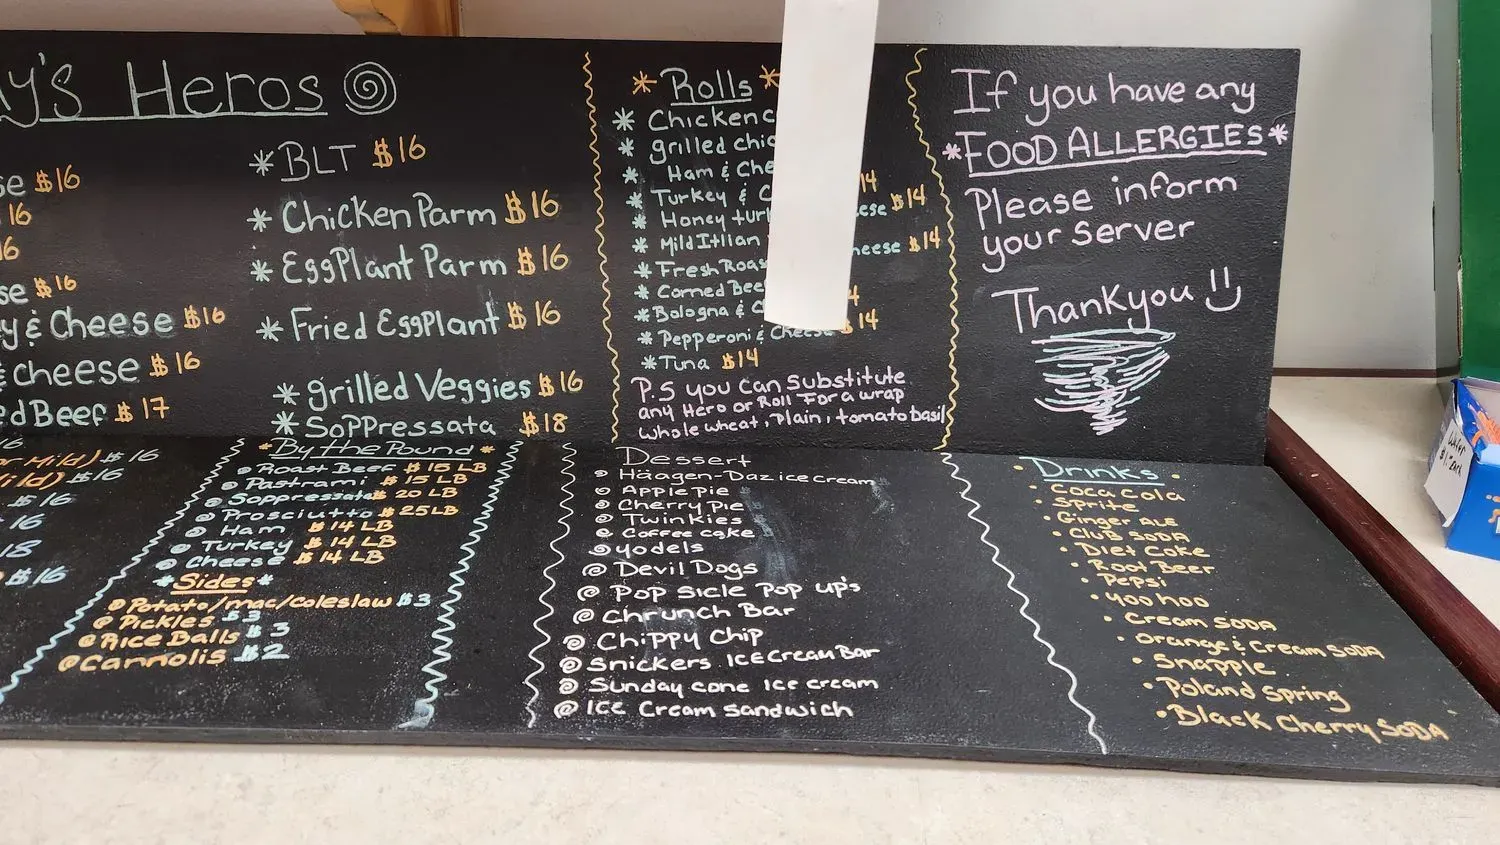 y's Heros
se $16
16
16
se $16
y & Cheese $16
& cheese $16
ed Beef $17
*BLT $16
*Chicken Parm $16
*EggPlant Parm $16
*Fried EggPlant $16
*grilled Veggies $16
*Soppressata $18
*Rolls*
*Chicken c
*grilled chic
*Ham & Che 14
*Turkey & C ese $14
*Honey turk
*Mild Itlian heese $14
*Fresh Roas
*Corned Bee 4
*Bologna & C $14
*Pepperoni & Cheese
*Tuna $14
P.S you can Substitute
any Hero or Roll For a wrap
whole wheat, Plain, tomato basil
If you have any
*FOOD ALLERGIES*
Please inform
your server
Thankyou
16
or Mild) $16
ild) $16
$16
16
18
$16
*By the Pound*
Roast Beef $15 LB
Pastrami $15 LB
Soppressata $20 LB
Prosciutto $25 LB
Ham $14 LB
Turkey $14 LB
Cheese $14 LB
*Sides*
Potato/mac/coleslaw $3
Pickles $3
Rice Balls $3
Cannolis $2
Dessert
Häagen-Daz ice cream
Apple pie
Cherry pie
Twinkies
Coffee cake
yodels
Devil Dogs
Pop sicle Pop up's
Chrunch Bar
Chippy Chip
Snickers Ice Cream Bar
Sunday cone Ice cream
Ice Cream sandwich
• Drinks •
• Coca Cola
• Sprite
• Ginger ALE
• Club SODA
• Diet Coke
• Root Beer
• Pepsi
• yoo hoo
• Cream SODA
• Orange & Cream SODA
• Snapple
• Poland Spring
• Black Cherry SODA